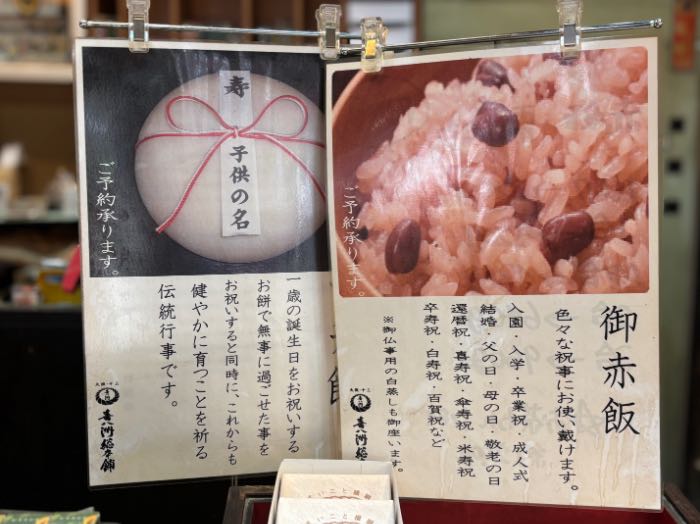 寿
子供の名
ご予約承ります。
一歳の誕生日をお祝いする
お餅で無事に過ごせた事を
お祝いすると同時に、これからも
健やかに育つことを祈る
伝統行事です。
大阪・十三
喜八洲総本舗
ご予約承ります。
御赤飯
色々な祝事にお使い戴けます。
入園・入学・卒業祝・成人式
結婚・父の日・母の日・敬老の日
還暦祝・喜寿祝・傘寿祝・米寿祝
卒寿祝・白寿祝・百賀祝など
※御仏事用の白蒸しも御座います。
大阪・十三
喜八洲総本舗